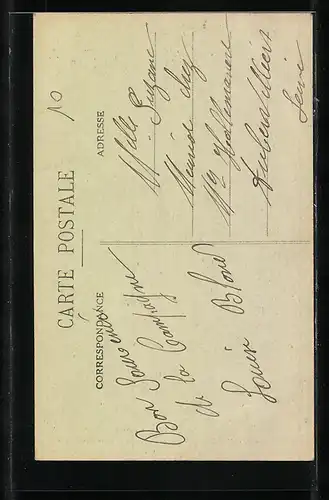 10
CARTE POSTALE
CORRESPONDANCE
Bon Souvenir
de la Campagne
Louis
ADRESSE
Mlle Suzanne
chez
Mr
Aubervilliers
Seine